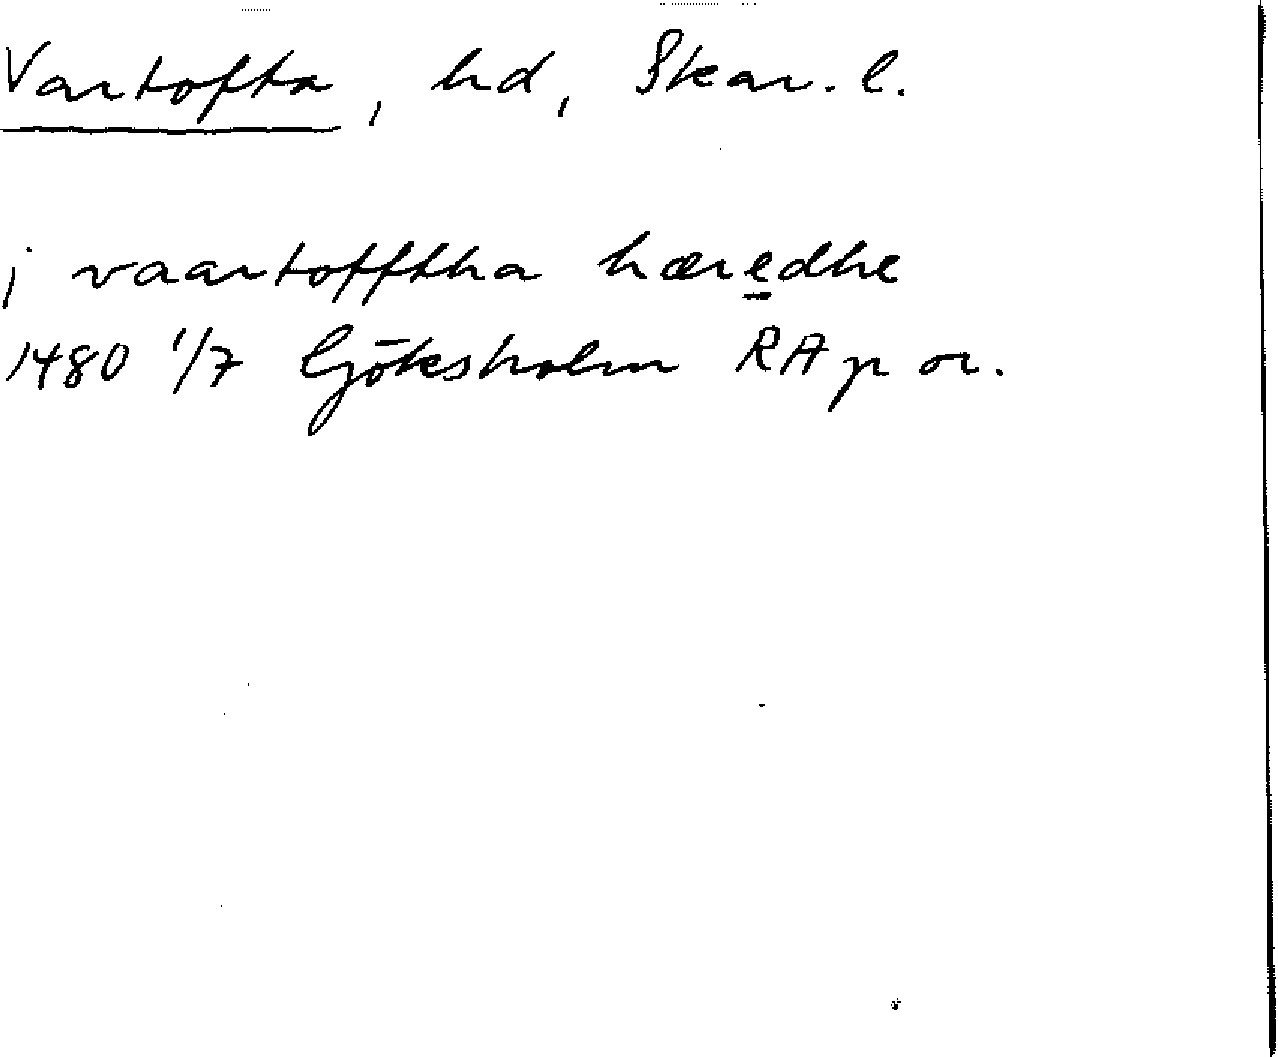 Vartofta, hd, Skar. l.
j vaartofftha hæredhe
1480 1/7 Gjöksholm RA p or.